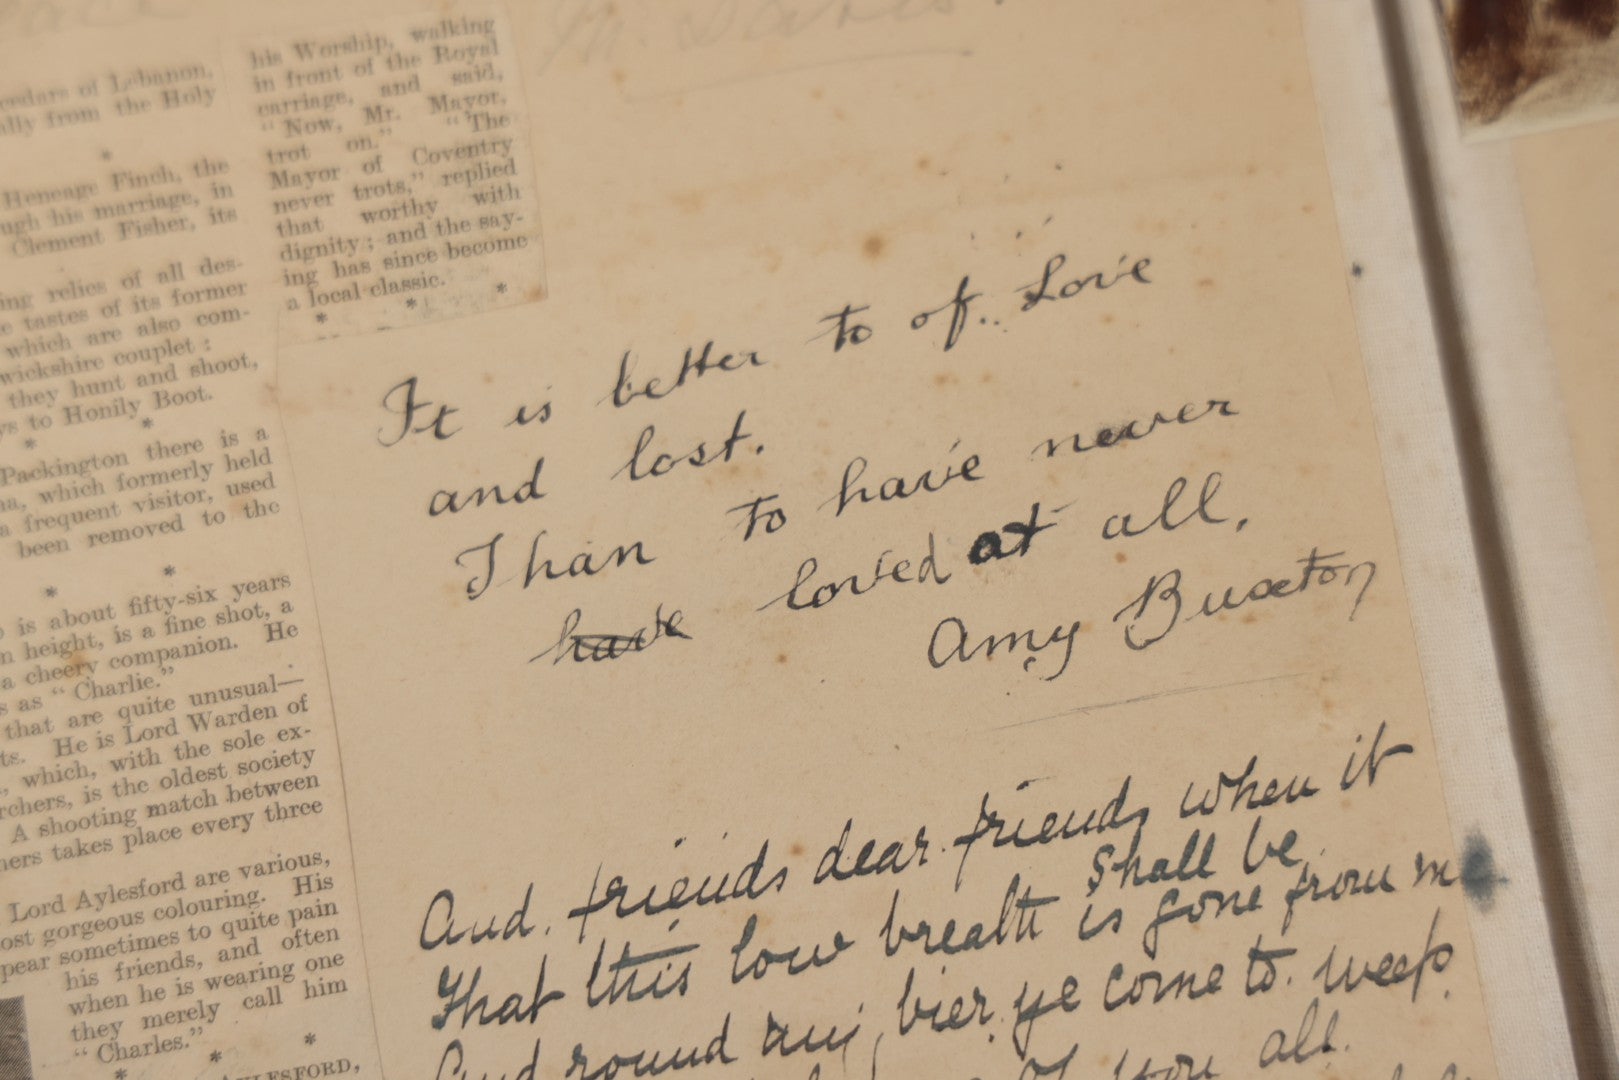 cedars of Lebanon,
ally from the Holy
*
Heneage Finch, the
ugh his marriage, in
Clement Fisher, its
ing relics of all des-
e tastes of its former
which are also com-
wickshire couplet :
they hunt and shoot,
ys to Honily Boot.
* *
Packington there is a
na, which formerly held
a frequent visitor, used
been removed to the
* *
o is about fifty-six years
n height, is a fine shot, a
a cheery companion. He
s as "Charlie."
that are quite unusual—
ts. He is Lord Warden of
, which, with the sole ex-
rchers, is the oldest society
A shooting match between
ners takes place every three
Lord Aylesford are various,
ost gorgeous colouring. His
pear sometimes to quite pain
his friends, and often
when he is wearing one
they merely call him
"Charles."
* * *
AYLESFORD,
his Worship, walking
in front of the Royal
carriage, and said,
"Now, Mr. Mayor,
trot on." "The
Mayor of Coventry
never trots," replied
that worthy with
dignity ; and the say-
ing has since become
a local classic.
* * *
It is better to of. Love
and lost.
Than to have never
have loved at all,
Amy Buxton
And. friends dear friends when it
shall be
That this low breath is gone from me
And round my bier ye come to weep
of you all.